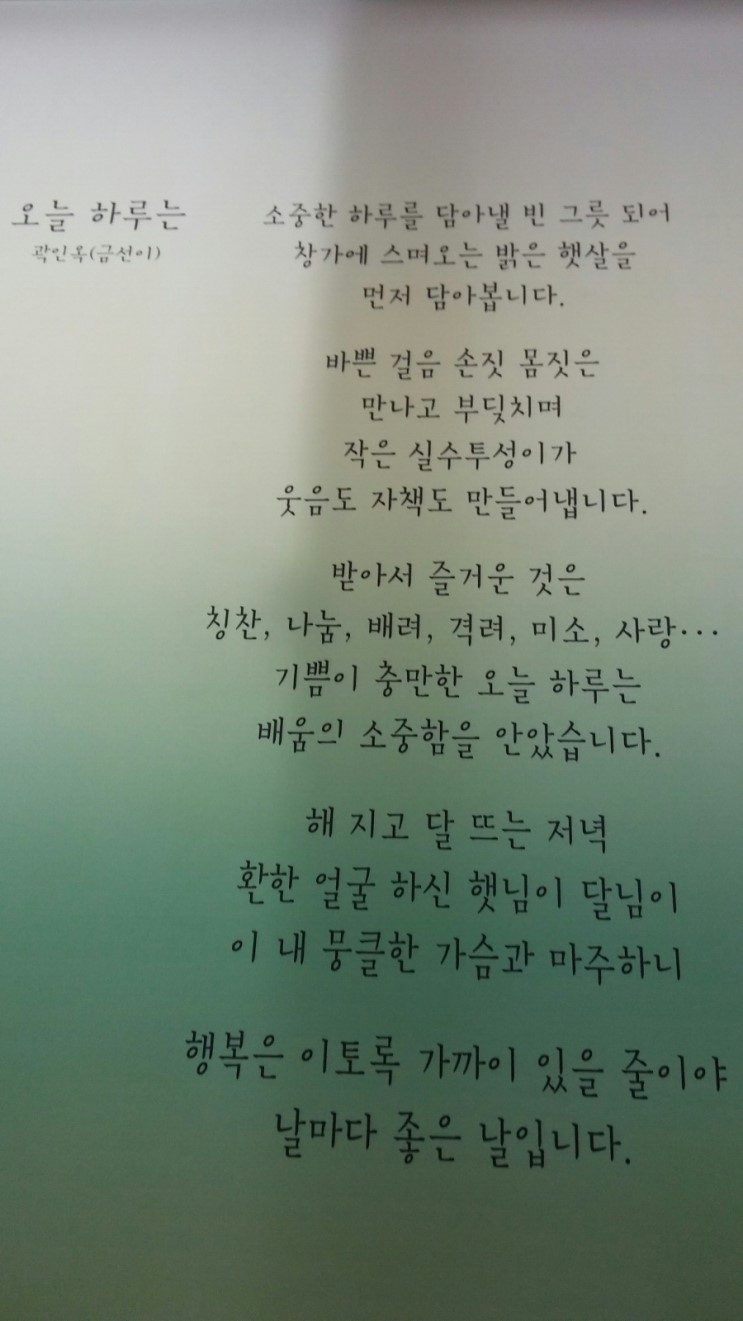 오늘 하루는
곽인옥(금선이)
소중한 하루를 담아낼 빈 그릇 되어
창가에 스며오는 밝은 햇살을
먼저 담아봅니다.
바쁜 걸음 손짓 몸짓은
만나고 부딪치며
작은 실수투성이가
웃음도 자책도 만들어냅니다.
받아서 즐거운 것은
칭찬, 나눔, 배려, 격려, 미소, 사랑···
기쁨이 충만한 오늘 하루는
배움의 소중함을 안았습니다.
해 지고 달 뜨는 저녁
환한 얼굴 하신 햇님이 달님이
이 내 뭉클한 가슴과 마주하니
행복은 이토록 가까이 있을 줄이야
날마다 좋은 날입니다.